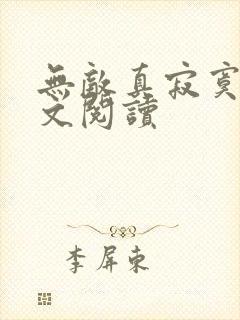 無敵真寂寞
文閱讀
李屏東